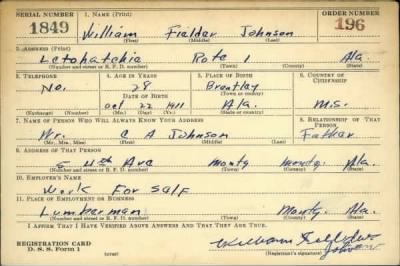 SERIAL NUMBER 1. NAME (Print) ORDER NUMBER
1849 William Fielder Johnson 196
(First) (Middle) (Last)
2. ADDRESS (Print)
Letohatchie Rote 1 Ala.
(Number and street or R. F. D. number) (Town) (County) (State)
3. TELEPHONE 4. AGE IN YEARS 5. PLACE OF BIRTH 6. COUNTRY OF CITIZENSHIP
No. 28 Brantley
DATE OF BIRTH (Town or county)
Oct 22 1911 Ala.
(Exchange) (Number) (Mo.) (Day) (Yr.) (State or country)
7. NAME OF PERSON WHO WILL ALWAYS KNOW YOUR ADDRESS 8. RELATIONSHIP OF THAT PERSON
Mr. C A Johnson Father
(Mr., Mrs., Miss) (First) (Middle) (Last)
9. ADDRESS OF THAT PERSON
4th Ave Montg Montg. Ala.
(Number and street or R. F. D. number) (Town) (County) (State)
10. EMPLOYER'S NAME
Work For Self
11. PLACE OF EMPLOYMENT OR BUSINESS
Lumberman Montg. Ala.
(Number and street or R. F. D. number) (Town) (County) (State)
I AFFIRM THAT I HAVE VERIFIED ABOVE ANSWERS AND THAT THEY ARE TRUE.
REGISTRATION CARD William Fielder
D. S. S. Form 1 (Registrant's signature) Johnson